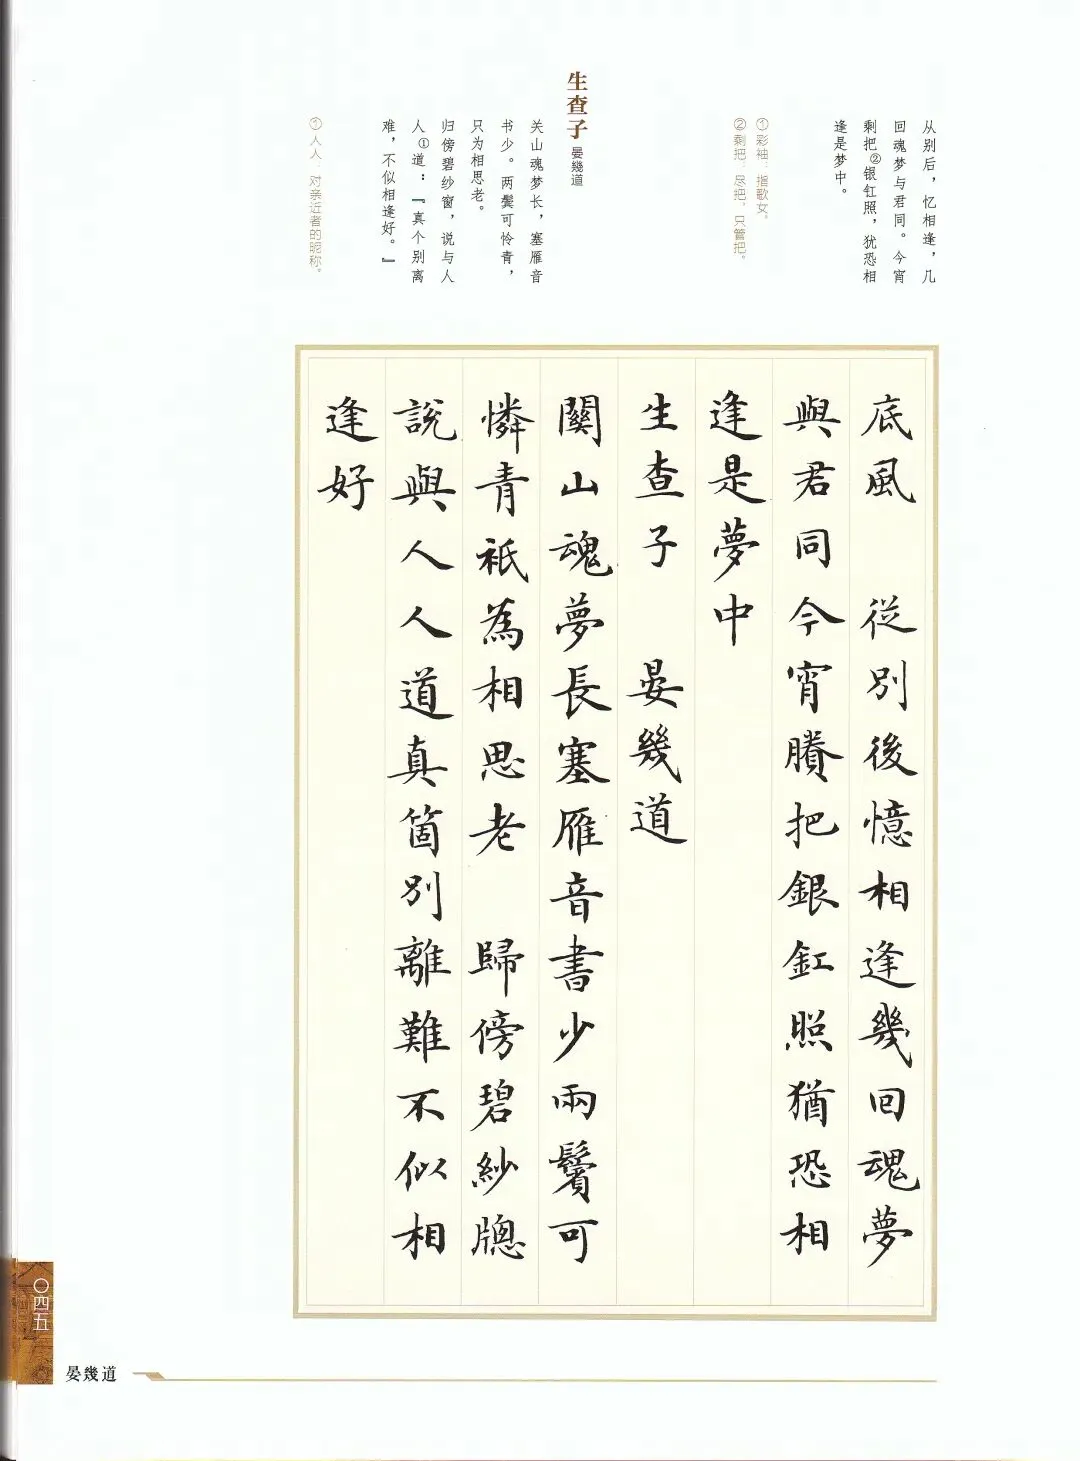 从别后，忆相逢，几
回魂梦与君同。今宵
剩把②银釭照，犹恐相
逢是梦中。
①彩袖：指歌女。
②剩把：尽把，只管把。
生查子 晏幾道
关山魂梦长，塞雁音
书少。两鬓可怜青，
只为相思老。
归傍碧纱窗，说与人
人①道：『真个别离
难，不似相逢好。』
①人人：对亲近者的昵称。
底風 從別後憶相逢幾回魂夢
與君同今宵賸把銀釭照猶恐相
逢是夢中
生查子 晏幾道
關山魂夢長塞雁音書少兩鬢可
憐青衹為相思老 歸傍碧紗牕
說與人人道真箇別離難不似相
逢好
〇四五
晏幾道